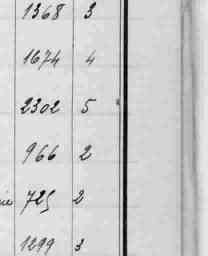 1368 3
1674 4
2302 5
966 2
725 2
1299 3